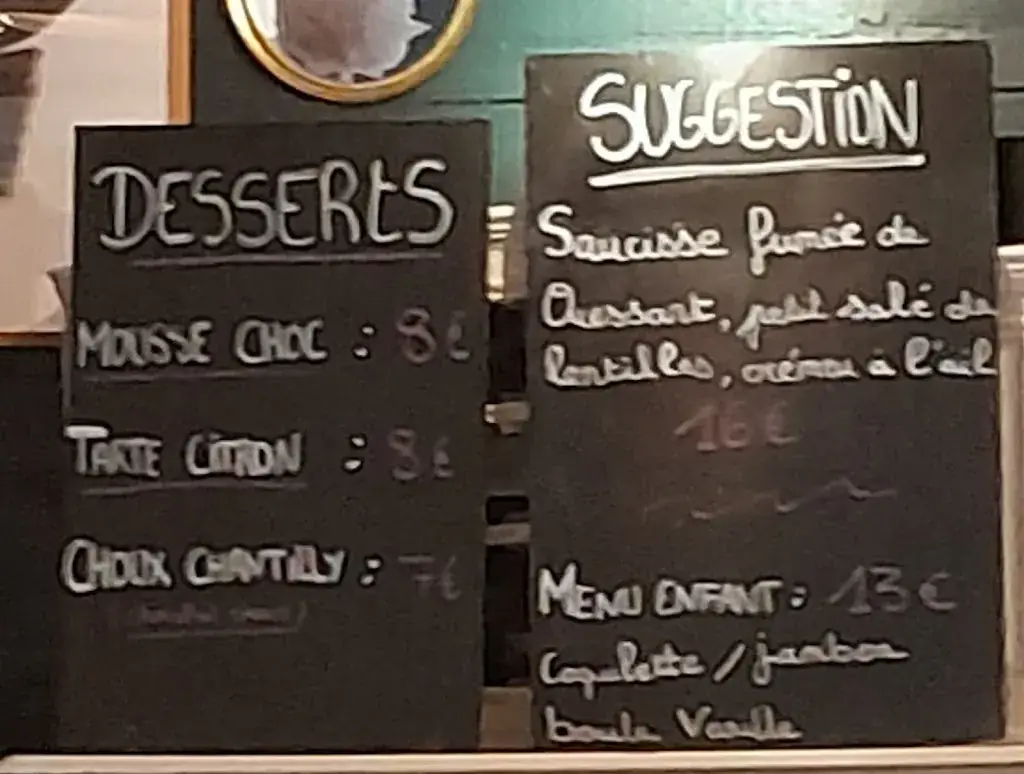 DESSERTS
MOUSSE CHOC : 8€
TARTE CITRON : 8€
CHOUX CHANTILLY : 7€
SUGGESTION
Saucisse fumée de
Ouessant, petit salé de
lentilles, crémeu à l'ail
16€
MENU ENFANT : 13€
Coquillette / jambon
boule Vanille